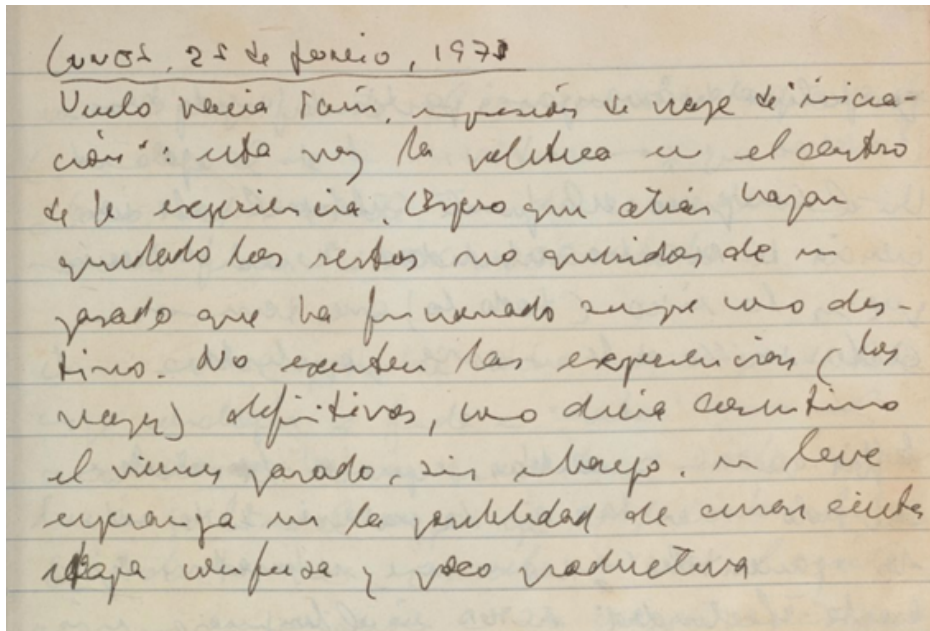 Lunes, 25 de junio, 1973
Vuelo hacia París, impresión de viaje de "inicia-
ción": esta vez la política en el centro
de la experiencia. Espero que atrás hayan
quedado los restos no queridos de un
pasado que ha funcionado siempre como des-
tino. No existen las experiencias (los
viajes) definitivos, como decía Constantino
el viernes pasado, sin embargo. un leve
esperanza en la posibilidad de cerrar cierta
etapa confusa y poco productiva